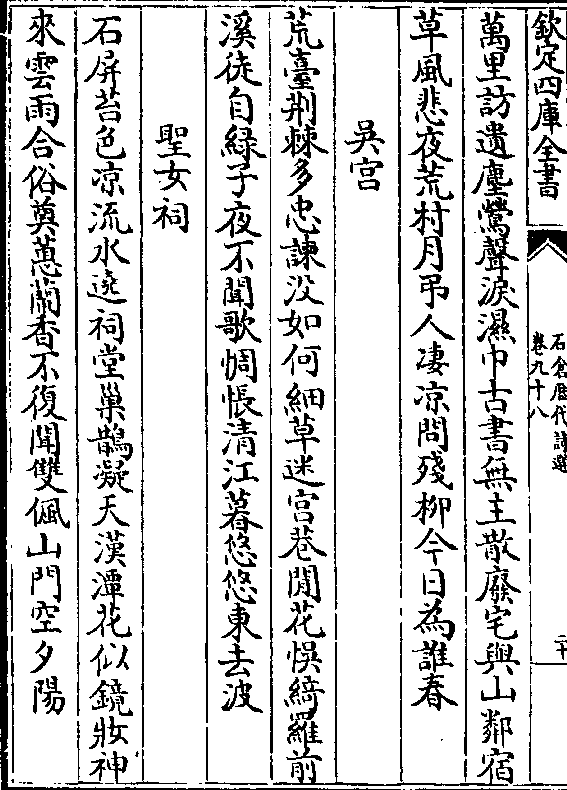 欽定四庫全書
石倉歴代詩選
卷九十八
二十
萬里訪遺塵鶯聲淚濕巾古書無主散廢宅與山鄰宿
草風悲夜荒村月弔人凄凉問殘柳今日為誰春
吳宫
荒臺荆棘多忠諫没如何細草迷宫巷閒花悞綺羅前
溪徒自緑子夜不聞歌惆悵清江暮悠悠東去波
聖女祠
石屏苔色凉流水遶祠堂巢鵲凝天漢潭花似鏡妝神
來雲雨合俗奠蕙蘭香不復聞雙佩山門空夕陽